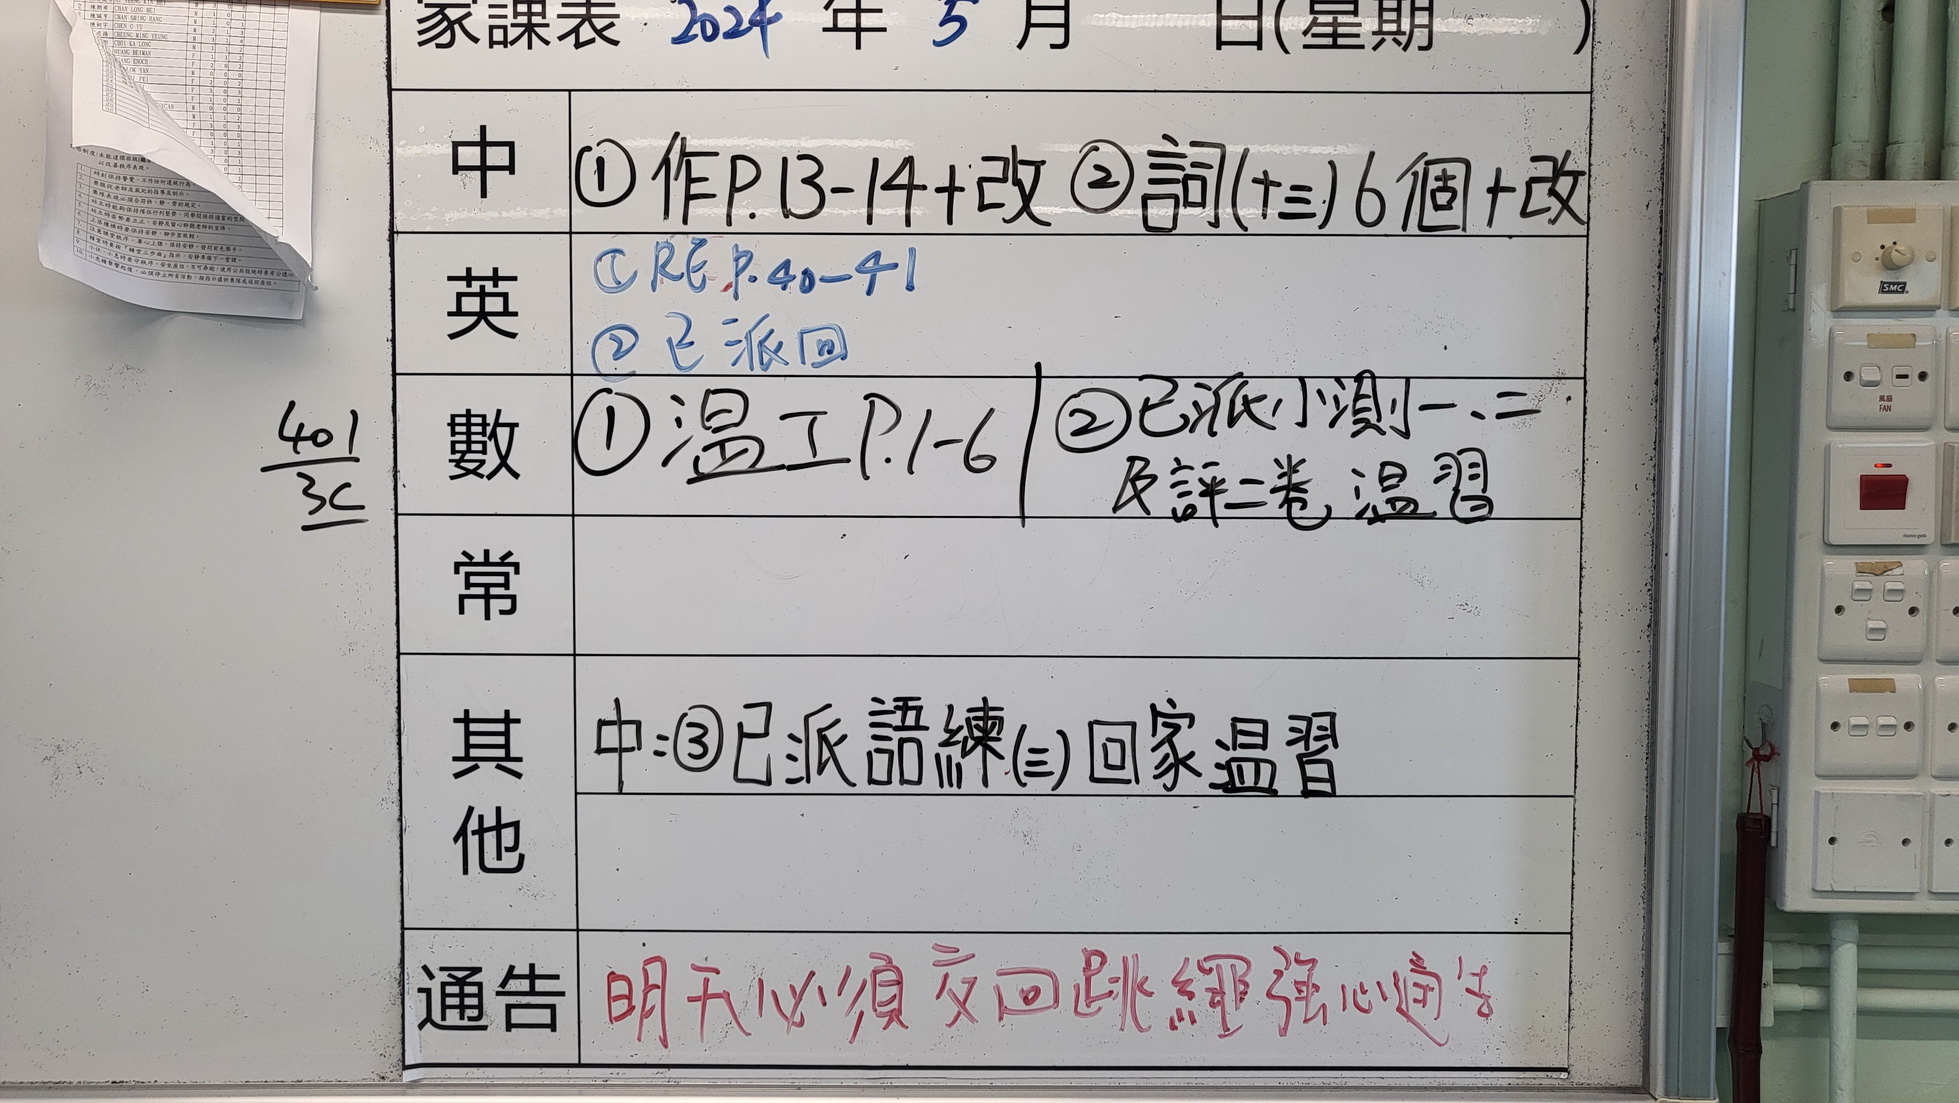 家課表 2024 年 5 月 日(星期 )
中 ①作P.13-14+改 ②詞(十三)6個+改
英 ①RE P.40-41
②已派回
數 ①温工P.1-6 ②已派小測一、二
及評二卷 温習
401
3C
常
其他 中:③已派語練(三)回家温習
通告 明天必須交回跳繩強心通告
SMC
風扇
FAN